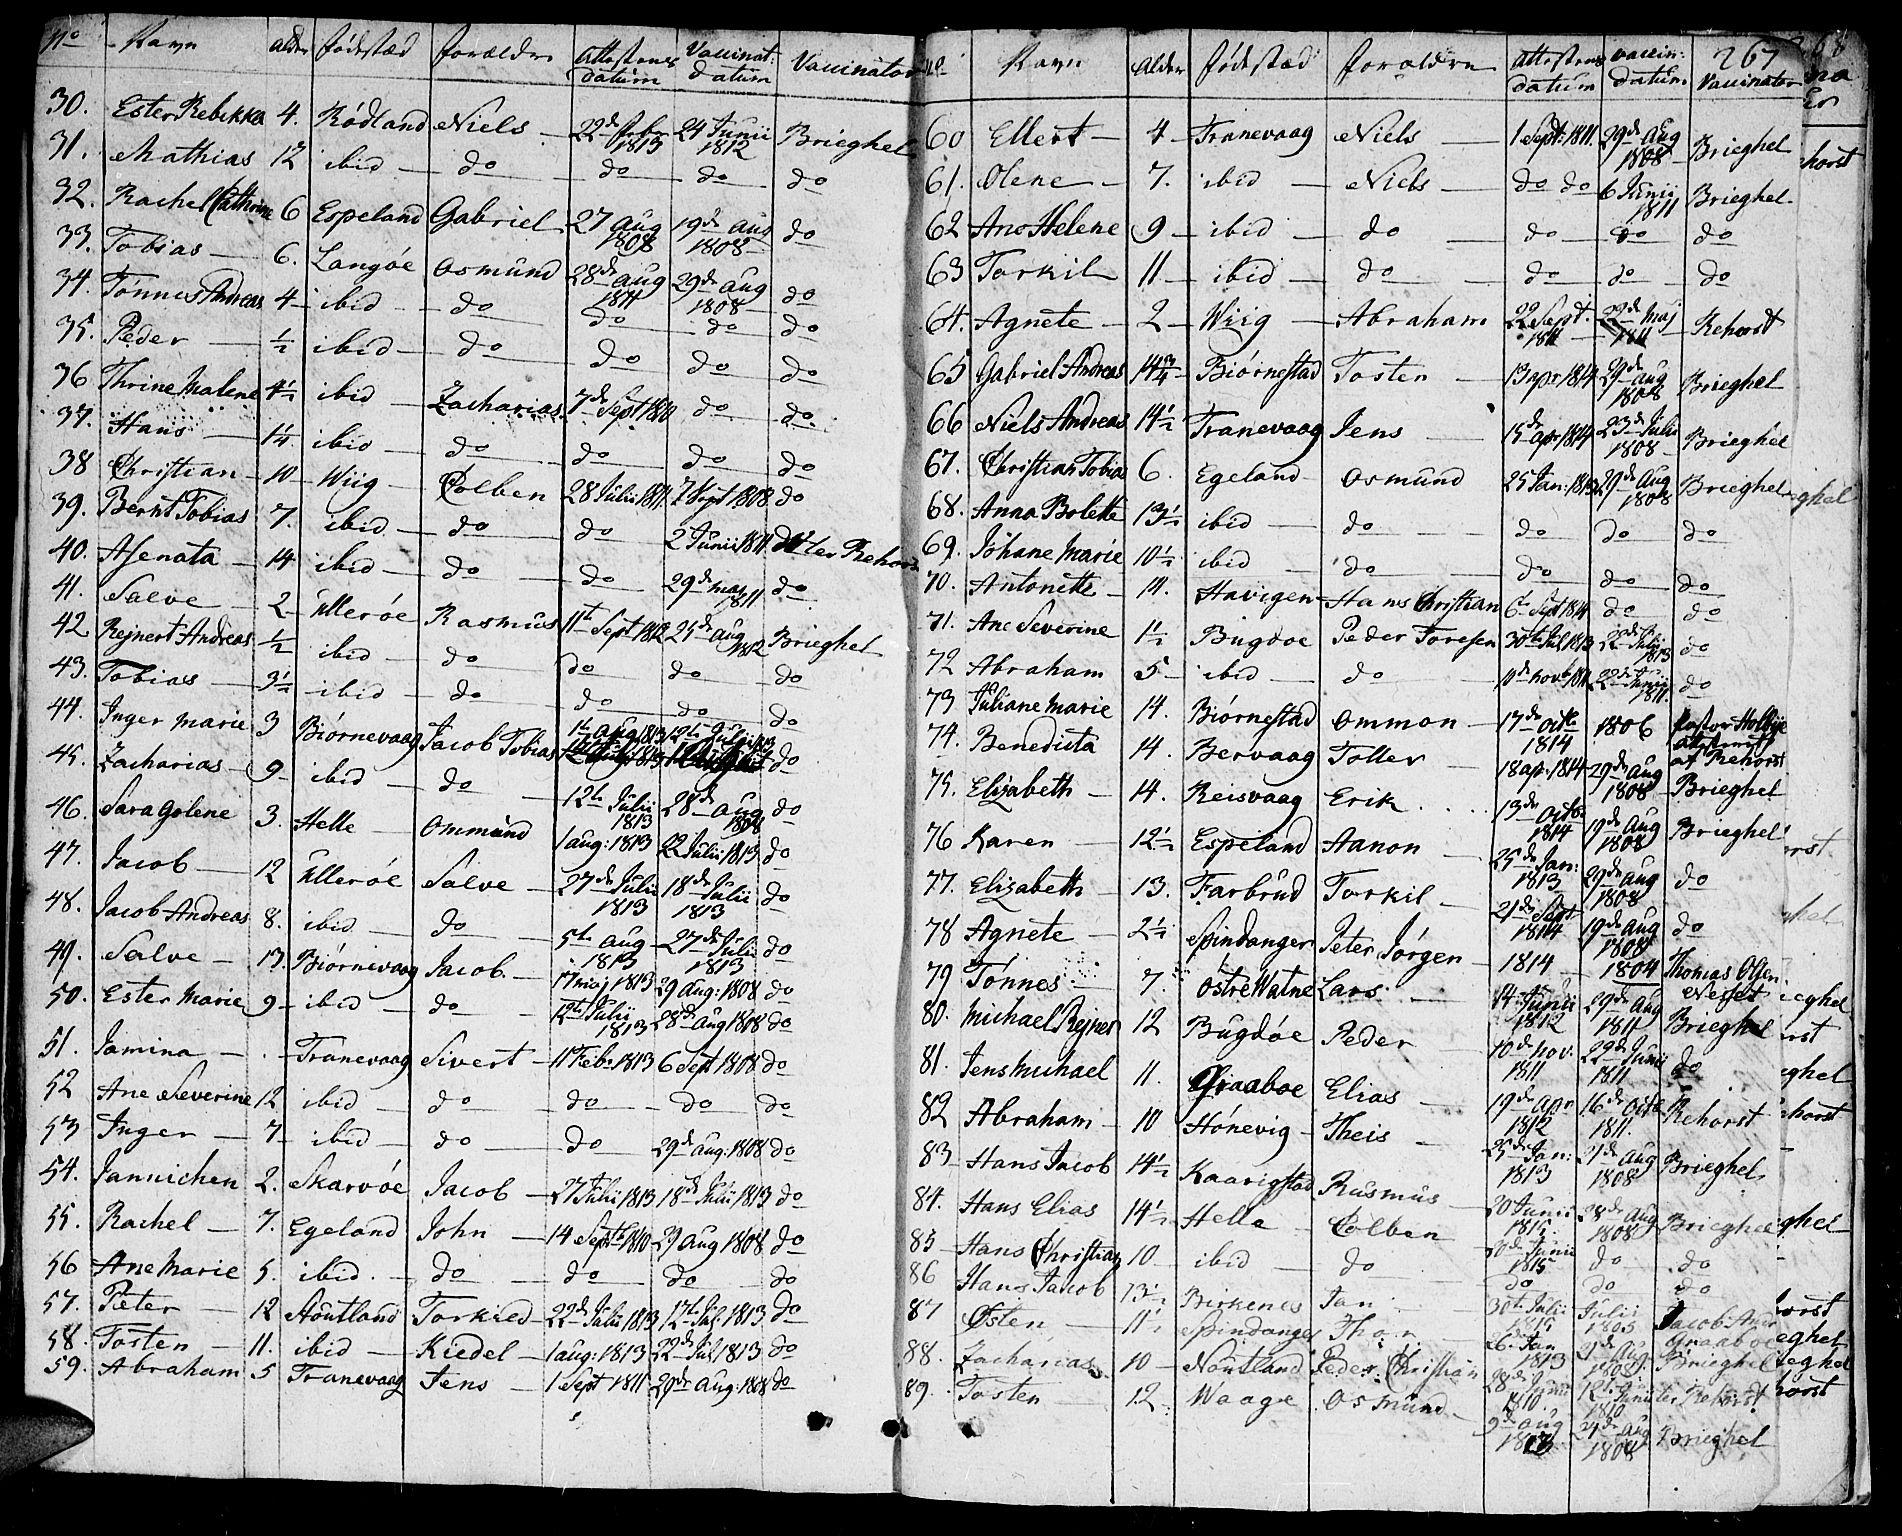 No Navn Alder fødestæd forældre Attestens datum Vaccinat: datum Vaccinator
30. Ester Rebekka 4. Rødland Niels 22de febr 1813 24 Junii 1812 Brieghel
31. Mathias 12 ibid do do do do
32. Rachel Cathrine 6 Espeland Gabriel 27 Aug 1808 19de Aug 1808 do
33. Tobias 6. Langøe Osmund 28de Aug 1811 29de Aug 1808 do
34. Tønnes Andreas 4 ibid do do do do
35. Peder ½ ibid do do do do
36 Thrine Malene 4½ ibid Zacharias 7de Sept 1811 do do
37. Hans 1¼ ibid do do do do
38 Christian 10 Wiig Colben 28 Julii 1811. 7 Sept 1808 do
39. Bernt Tobias 7. ibid do do 2 Junii 1811. Rehorst
40. Asenata 14 ibid do do 29de maj 1811 do
41. Salve 2 Ullerøe Rasmus 11te Sept 1812 25de Aug 1812 Brieghel
42 Rejnert Andreas ½ ibid do do do do
43. Tobias 3½ ibid do do do do
44. Inger Marie 3 Biørnevaag Jacob Tobias 1te Aug 1813 12te Julii 1813 do
45. Zacharias 9 ibid do 12te Julii 1813 28de Aug 1808 do
46. Sara Golene 3. Helle Ommund 1 aug: 1813 22 Julii 1813 do
47. Jacob 12 Ullerøe Salve 27de Julii 1813 18de Julii 1813 do
48. Jacob Andreas 8. ibid do 5te Aug 1813 27de Julii 1813 do
49. Salve 13. Biørnevaag Jacob 17 maj 1813 29 Aug: 1808 do
50. Ester Marie 9 ibid do 12te Julii 1813 28de Aug 1808 do
51. Jamina . Tranevaag Sivert 11 Feb. 1813 6 Sept 1808 do
52 Ane Severine 12 ibid do do do do
53 Inger 7 ibid do do 29de aug: 1808 do
54. Jannichen 2. Skarvøe Jacob 27 Julii 1813 18de Julii 1813 do
55. Rachel 7. Egeland John 14 Septbr 1810 29 Aug 1808 do
56 Ane Marie 5. ibid. do do do do
57. Pieter 12 Houtland Torkild 22de Julii 1813 12te Jul: 1813 do
58. Tosten 11. ibid Kiedel 1 aug: 1813 22de Jul 1813 do
59. Abraham 5 Tranevaag Jens 1 Sept 1811 29de Aug: 1808 do
No Navn Alder fødestæd forældre Attestens datum Vaccin: datum 267 Vaccinator
60 Ellert 4 Tranevaag Niels 1 Sept: 1811. 29de Aug 1808 Brieghel
61. Olene 7. ibid Niels do do 6 Junii 1811 Brieghel
62 Ane Helene 9 ibid do do do do
63 Torkil 11 ibid do do do do
64. Agnete 2 Wiig Abraham 22 Sept. 1811 22de Maj 1811 Rehorst
65 Gabriel Andreas 14¾ Biørnestad Tosten 13 apr 1814 29de Aug 1808 Brieghel
66 Niels Andreas 14½ Tranevaag Jens 15de apr 1814 23de Julii 1808 Brieghel
67. Christian Tobias 6. Egeland Osmund 25 Jan: 1813 29de Aug 1808 Brieghel
68. Anna Bolette 13½ ibid do do do do
69. Johane Marie 10½ ibid do do do do
70. Antonette 14. Havigen Hans Christian 6te Sept 1814 do do
71. Ane Severine 1½ Bugdøe Peder Toresen 30te Jul 1813 22de Julii 1813 do
72 Abraham 5 ibid do 10de novbr 1811. 22de Junii 1811. do
73 Juliane Marie 14. Biørnestad Ommon 17de octb 1814 1806 pastor attesteret af Rehorst
74. Benedicta 14. Bervaag Toller 18 apr. 1814 29de Aug 1808 Brieghel
75. Elizabeth 14. Reisvaag Erik 13de Octb 1814 19de Aug 1808 Brieghel
76 Karen 12½ Espeland Aanon 25de Jan: 1813 29de Aug 1808 do
77. Elizabeth 13. Farbrud Torkil 21de Sept 1814 19de Aug 1808 do
78 Agnete 2½ Spindanger Peter Jørgen 1814 1804 Thomas Olsen
79 Tønnes 7. Østre Watne Lars 14de Junii 1812 29de Aug 1811 Brieghel
80. Michael Rejner 12 Bugdøe Peder 10de nov. 1811 22de Junii 1811 do
81. Jens Michael 11. Graaboe Elias 19de Apr 1812 16de Octb 1811. Rehorst
82 Abraham 10 Hønevig Theis 25de Jan: 1813 21de Aug 1808 Brieghel
83 Hans Jacob 14½ Kaarigstad Rasmus 20 Junii 1815. 28de Aug 1808 Brieghel
84. Hans Elias 14½ Helle Colben 20de Junii 1815 do do
85 Hans Christian 10 ibid do do do do
86 Hans Jacob 13½ Birkenes Jan 30te Julii 1815 Julii Jacob Graaboe
87 Østen 11½ Spindanger 26 Jan 1813 Brieghel
88. Zacharias 10 Noutland Peder Christian 28de 1810. 12te Junii 1810 Rehorst
89. Tosten 12 Waage Osmund 9de Aug 29de Aug 1808 Brieghel